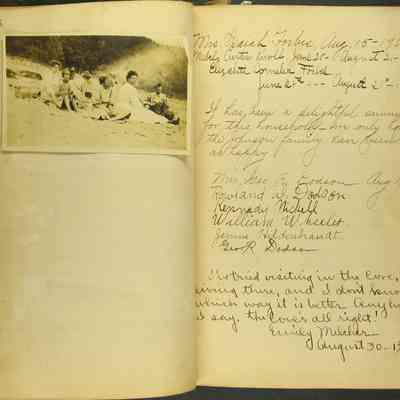 Mrs. Forbes Aug. 15-19
Curtis June 20 - August 2
Elizabeth Cornelia Forbes
June 20th --- August 2
It has been a delightful summ
for this household. I'm only
the Johnson family can
as happy
Mrs. Geo. R. Dodson Aug
Rowland W. Dodson
Kennedy Nichell
William Wheeler
Jennie Hildenbrandt
Geo R. Dodson
I tried visiting in the Cove,
iving there, and I don't know
which way it is better. Any
I say. the Cove's all right!
Emily Melcher
August 30-1